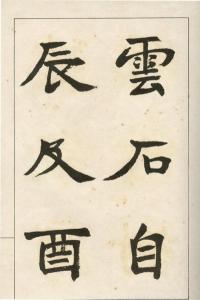 雲石自
辰及酉